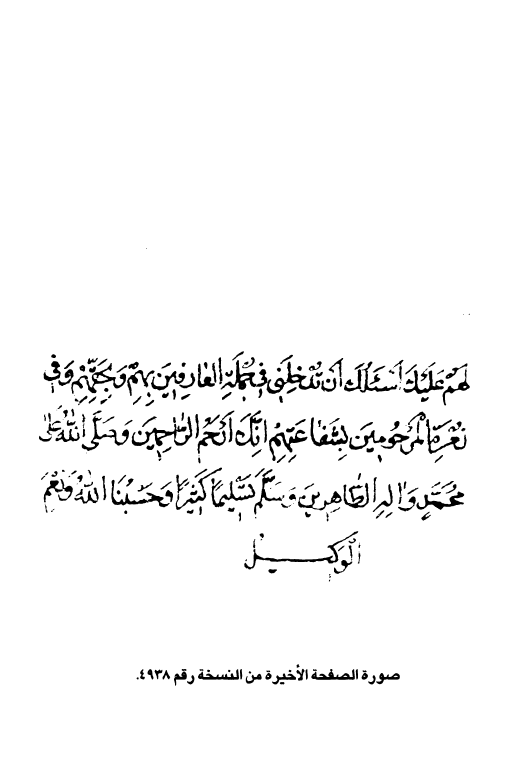 لَهُمْ عَلَيْكَ اَسْئَلُكَ اَنْ تُدْخِلَنِي فِي جُمْلَةِ الْعارِفِينَ بِهِمْ وَبِحَقِّهِمْ وَفِي
زُمْرَةِ الْمَرْحُومِينَ بِشَفاعَتِهِمْ اِنَّكَ اَرْحَمُ الرّاحِمِينَ وَصَلَّى اللّٰهُ عَلى
مُحَمَّدٍ وَالِهِ الطّاهِرِينَ وَسَلَّمَ تَسْلِيمًا كَثِيرًا وَحَسْبُنَا اللّٰهُ وَنِعْمَ
الْوَكِيل
صورة الصفحة الأخيرة من النسخة رقم ٤٩٣٨.